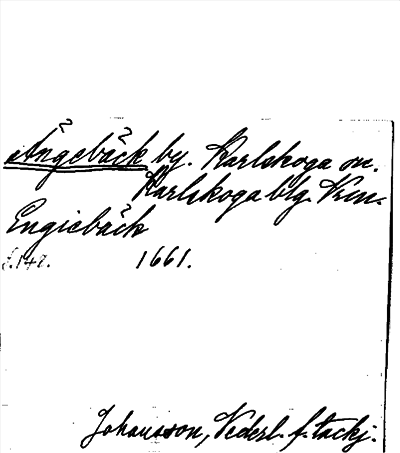 Ängebäck by. Karlskoga sn.
Karlskoga blg. Vrm.
Engiebäck
s. 147. 1661.
Johansson, Vederl. f. tackj.